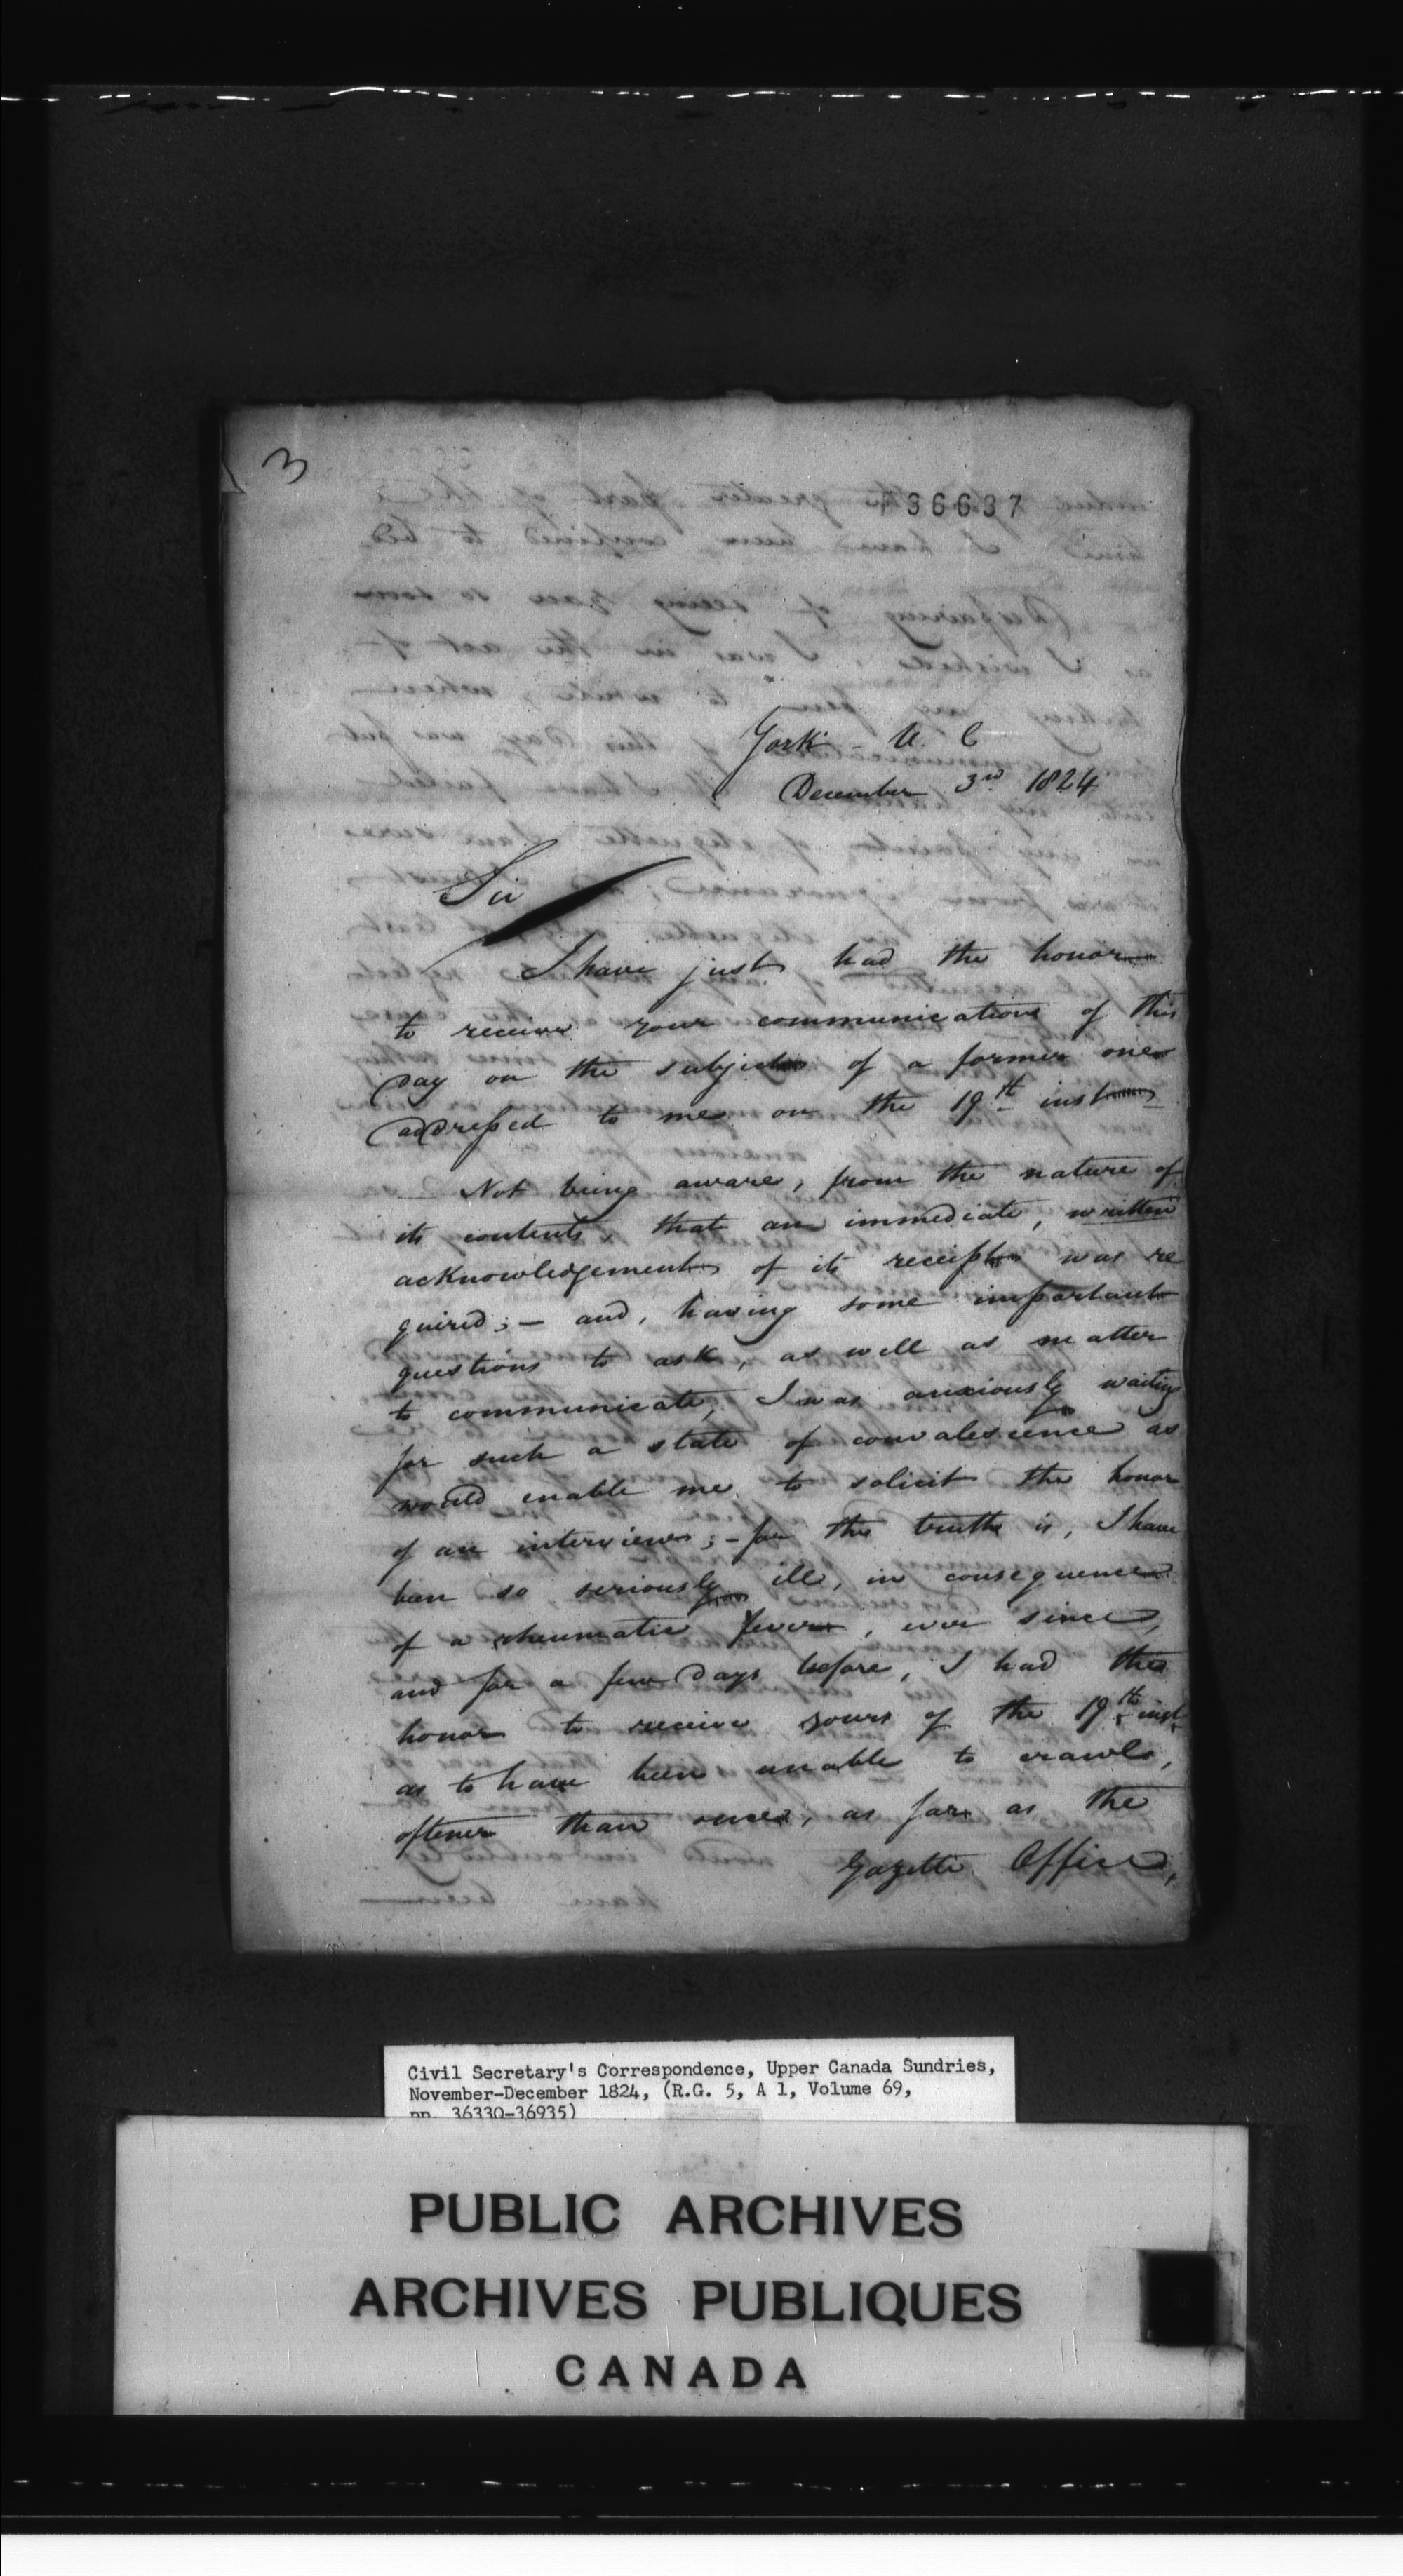 3
36637
York - U. C
December 3rd 1824
Sir
I have just had the honor
to receive your communication of this
day on the subject of a former one
addressed to me on the 19th inst
Not being aware, from the nature of
its contents, that an immediate, written
acknowledgement of its receipt was re
quired; — and, having some important
questions to ask, as well as matter
to communicate, I was anxiously waiting
for such a state of convalescence as
would enable me to solicit the honor
of an interview; - for the truth is, I have
been so seriously ill, in consequence
of a rheumatic fever, ever since,
and for a few days before, I had the
honor to receive yours of the 19th inst
as to have been unable to crawl,
oftener than once, as far as the
Gazette Office,
Civil Secretary's Correspondence, Upper Canada Sundries,
November-December 1824, (R.G. 5, A 1, Volume 69,
pp. 36330-36935)
PUBLIC ARCHIVES
ARCHIVES PUBLIQUES
CANADA